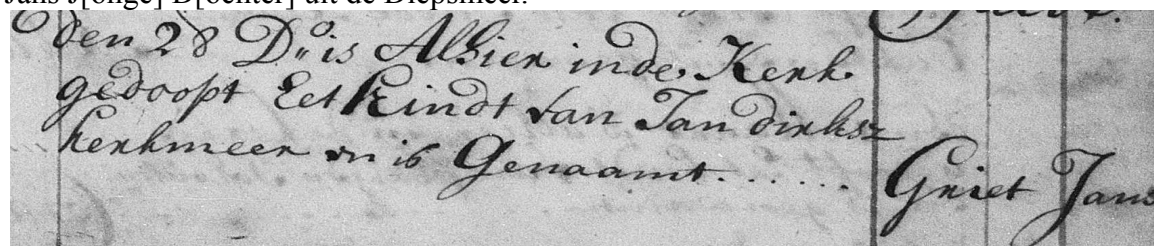 Jans J[onge] D[ochter] uit de Diepsmeer.
den 28 D:o is Alhier inde Kerk
gedoopt Het kindt van Jan dirksz
kerkmeer en is Genaamt ...... Griet Jans